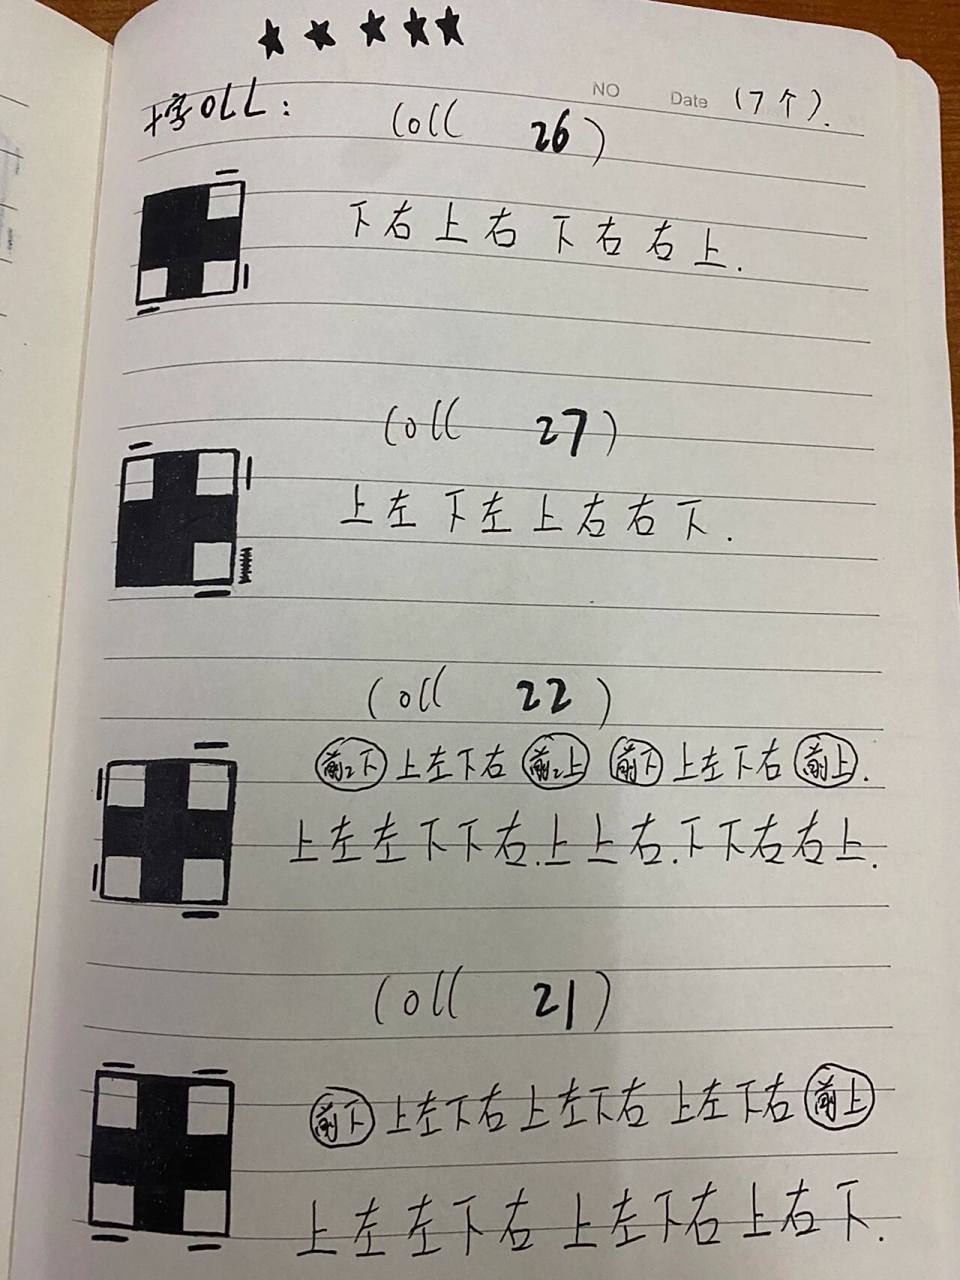 NO Date (7个).
十字OLL:
(oll 26)
下右上右下右右上.
(oll 27)
上左下左上右右下.
(oll 22)
前2下 上左下右 前2上 前下 上左下右 前上.
上左左下下右.上上右.下下右右上.
(oll 21)
前下 上左下右上左下右 上左下右 前上
上左左下右 上左下右上右下.